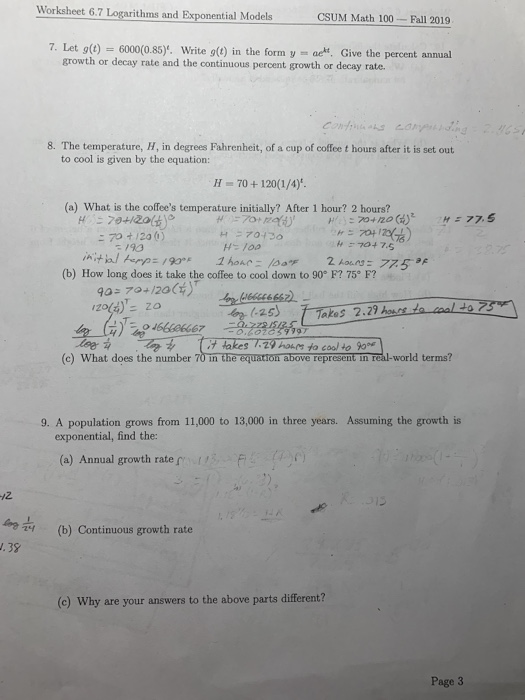 Worksheet 6.7 Logarithms and Exponential Models CSUM Math 100 — Fall 2019
7. Let g(t) = 6000(0.85)^t. Write g(t) in the form y = ae^kt. Give the percent annual
growth or decay rate and the continuous percent growth or decay rate.
continuous compounding
8. The temperature, H, in degrees Fahrenheit, of a cup of coffee t hours after it is set out
to cool is given by the equation:
H = 70 + 120(1/4)^t.
(a) What is the coffee's temperature initially? After 1 hour? 2 hours?
H = 70+120(1/4)^0 H = 70+120(1/4)^1 H = 70+120(1/4)^2 H = 77.5
= 70+120(1) H = 70+30 H = 70+120(1/16)
= 190 H = 100 H = 70+7.5
initial temp= 190°F 1 hour= 100°F 2 hours= 77.5°F
(b) How long does it take the coffee to cool down to 90° F? 75° F?
90 = 70+120(1/4)^T
120(1/4)^T = 20
log (.166666667)
log (.25)
Takes 2.29 hours to cool to 75°F
log (1/4)^T = 0.166666667
log 1/4 log 1/4
-0.602059991
it takes 1.29 hours to cool to 90°F
(c) What does the number 70 in the equation above represent in real-world terms?
9. A population grows from 11,000 to 13,000 in three years. Assuming the growth is
exponential, find the:
(a) Annual growth rate
42
log 1/24
1.38
(b) Continuous growth rate
(c) Why are your answers to the above parts different?
Page 3